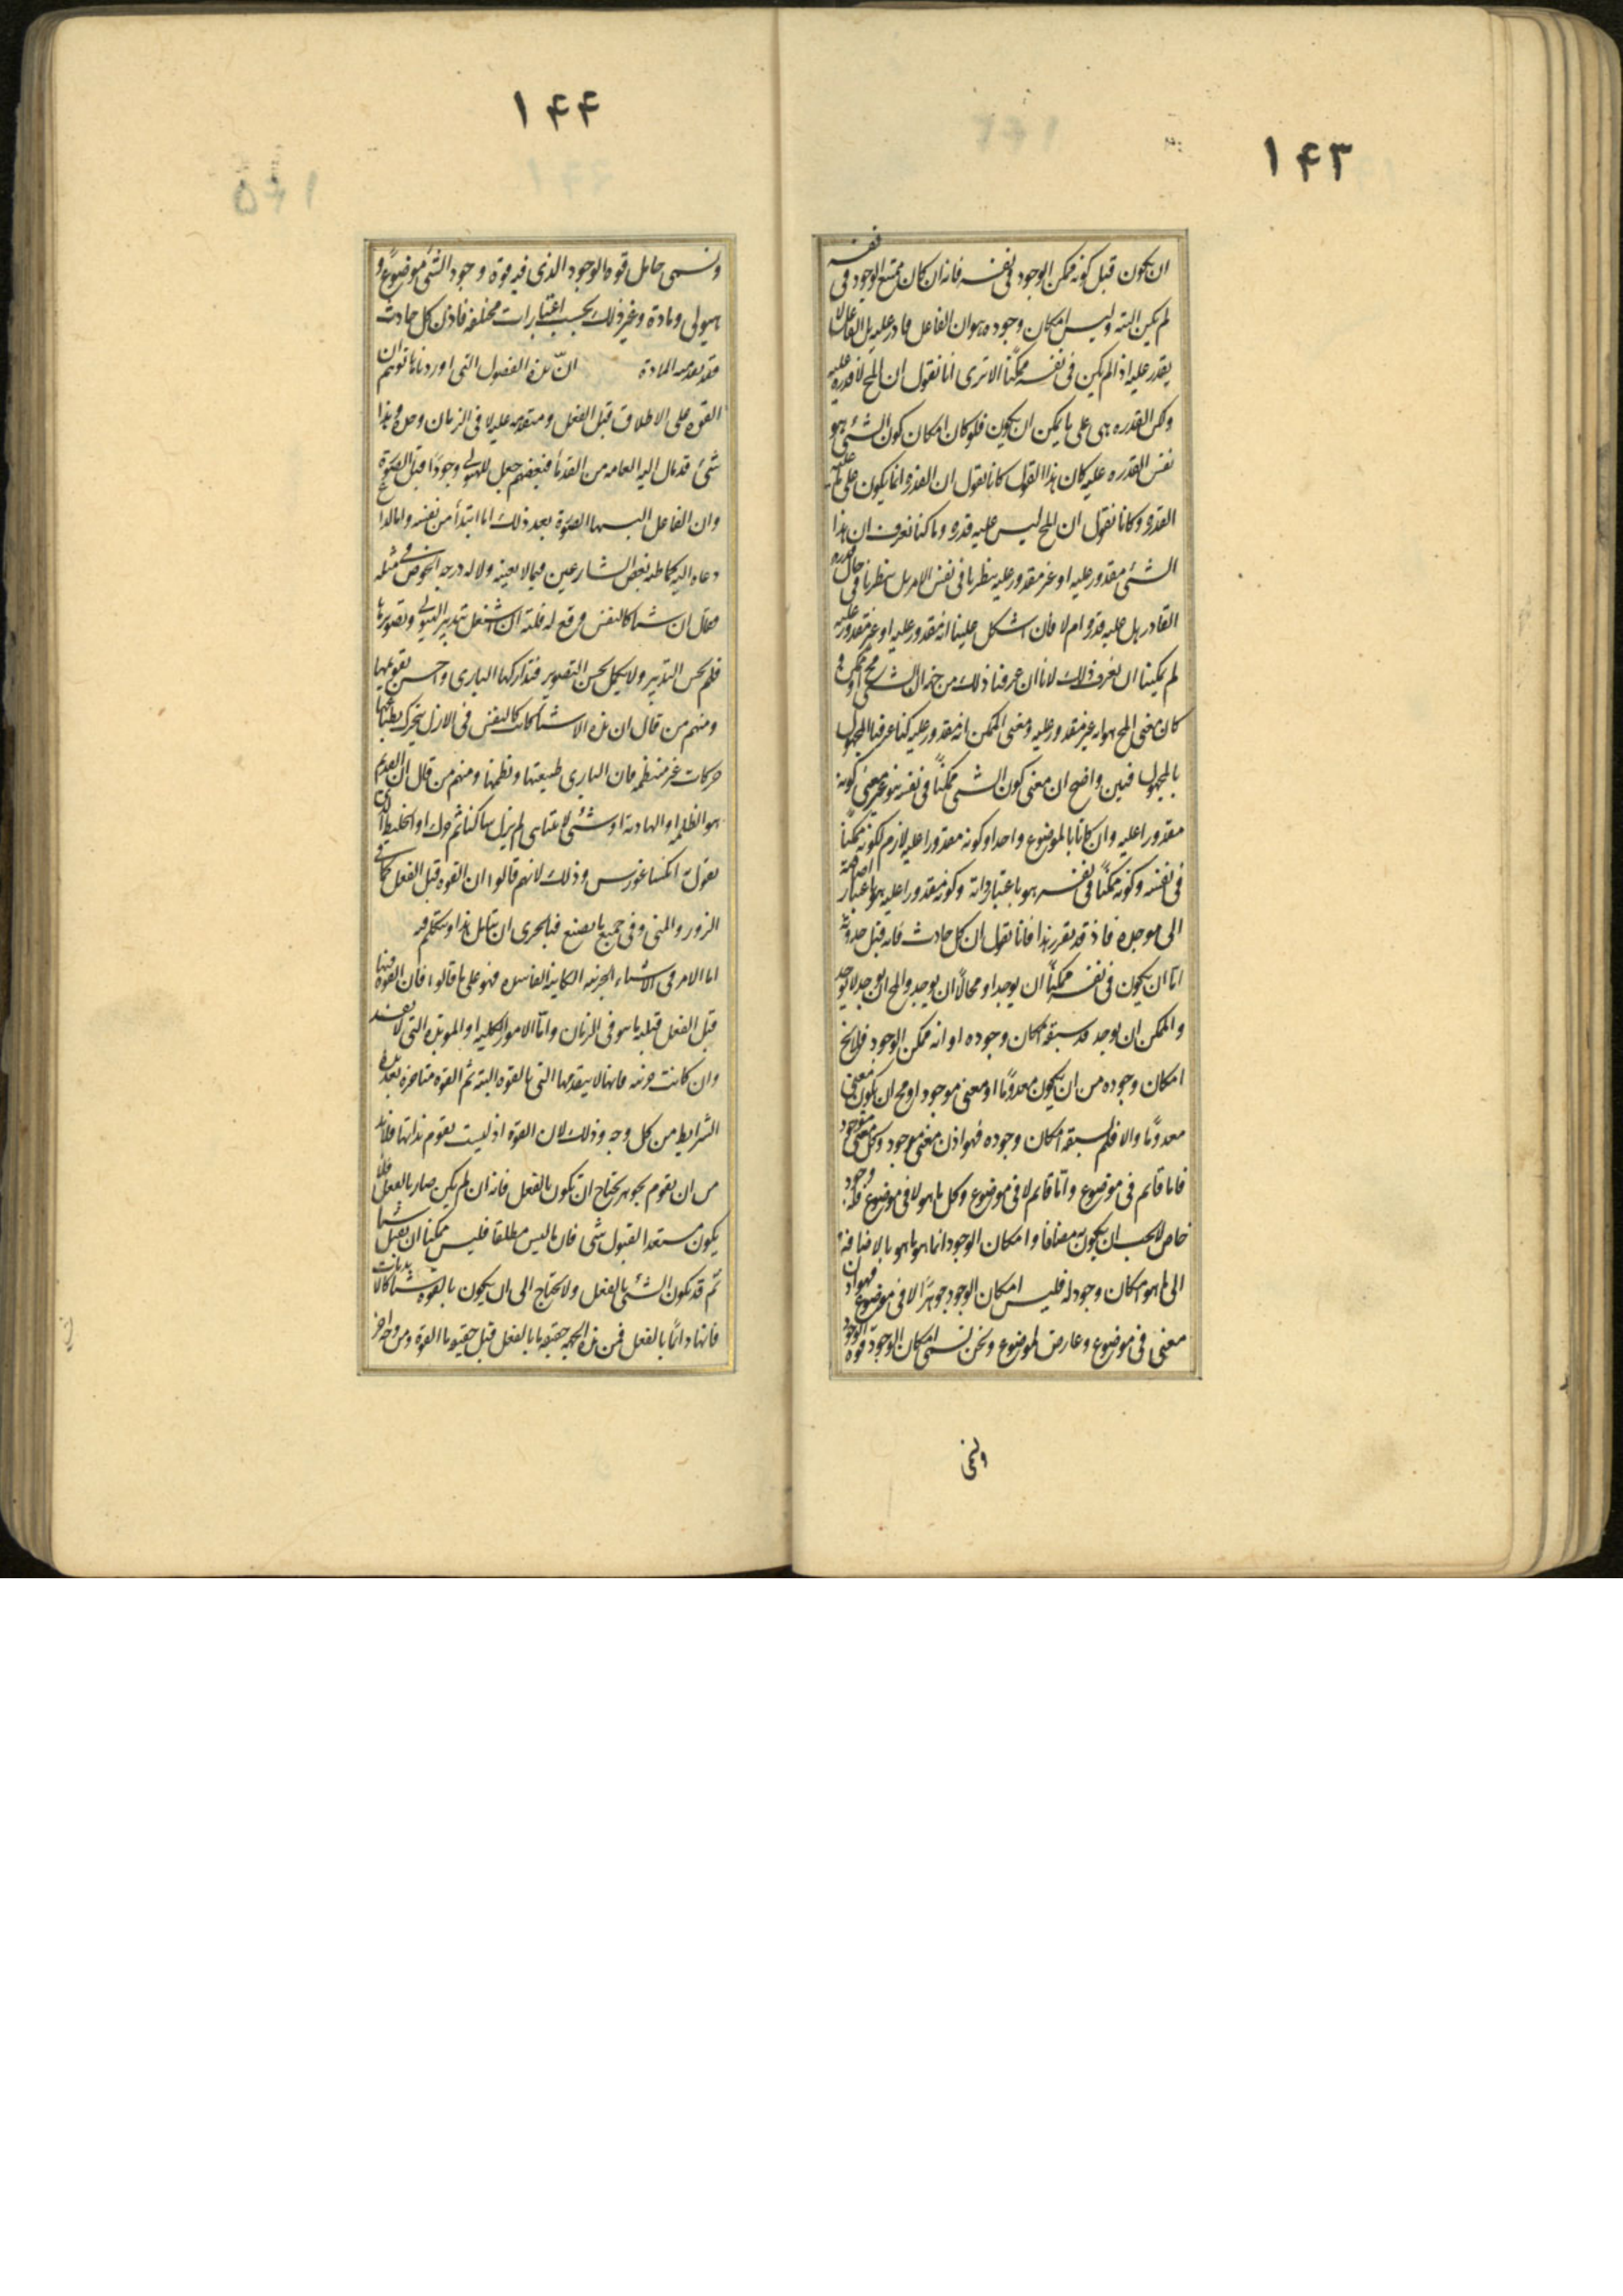 ١۴٣
ان يكون قبل كونه ممكن الوجود فى نفسه فانه ان كان ممتنع الوجود فى نفسه
لم يكن البته وليس امكان وجوده هو ان الفاعل قادر عليه بل الفاعل لا
يقدر عليه اذا لم يكن فى نفسه ممكنا الا ترى انا نقول ان المح لا قدره عليه
ولكن القدره هى على ما يمكن ان يكون فلو كان امكان كون الشئ هو
نفس القدره عليه كان هذا القول كانا نقول ان القدرة انما يكون على ما عليه
القدرة وكانا نقول ان المح ليس عليه قدرة وما كنا نعرف ان هذا
الشئ مقدور عليه او غير مقدور عليه بنظرنا فى نفس الامر بل بنظرنا فى حال قدره
القادر هل عليه قدرة ام لا فان اشكل علينا انه مقدور عليه او غير مقدور عليه
لم يمكننا ان نعرف ذلك لانا ان عرفنا ذلك من جهه ان الشئ مح او ممكن و
كان معنى المح هو انه غير مقدور عليه ومعنى الممكن انه مقدور عليه كنا عرفنا المجهول
بالمجهول فبين واضح ان معنى كون الشئ ممكناً فى نفسه هو غير معنى كونه
مقدورا عليه وان كانا بالموضوع واحدا وكونه مقدورا عليه لازم لكونه ممكناً
فى نفسه وكونه ممكناً فى نفسه هو باعتبار ذاته وكونه مقدورا عليه هو باعتبار اضافته
الى موجده فاذ قد تقرر هذا فانا نقول ان كل حادث فانه قبل حدوثه
امّا ان يكون فى نفسه ممكناً ان يوجد او محالاً ان يوجد والمح ان يوجد لا يوجد
والممكن ان يوجد قد سبقه امكان وجوده او انه ممكن الوجود فلا يخ
امكان وجوده من ان يكون معدومًا او معنى موجود او مح ان يكون معنى
معدومًا والا فلم يسبقه امكان وجوده فهو اذن معنى موجود وكل معنى موجود
فاما قائم فى موضوع وامّا قائم لا فى موضوع وكل ما هو لا فى موضوع فله وجود
خاص لا يجب ان يكون به مضافا وامكان الوجود انما هو ما هو بالاضافة
الى ما هو امكان وجود له فليس امكان الوجود جوهرًا لا فى موضوع فهو اذن
معنى فى موضوع وعارض لموضوع ونحن نسمى امكان الوجود قوة الوجود
ونسمى
١۴۴
ونسمى حامل قوة الوجود الذى فيه قوة وجود الشئ موضوعاً و
هيولى ومادة وغير ذلك بحسب اعتبارات مختلفة فاذن كل حادث
فقد تقدمته المادة ان هذه الفصول التى اوردناها توهم ان
القوة على الاطلاق قبل الفعل ومتقدمه عليه لا فى الزمان وحده وهذا
شئ قد مال اليه العامه من القدماء فبعضهم جعل للهيولى وجودًا قبل الصورة
وان الفاعل البسها الصورة بعد ذلك اما ابتدأ من نفسه واما لداع
دعاه اليه كما ظنه بعض الشارعين فيما لا يعنيه ولا له درجه الخوض فى مثله
فقال ان شيئا كالنفس وقع له فلتة ان اشتغل بتدبير الهيولى وتصويرها
فلم يحسن التدبير ولا يكمل لحسن التصوير فتداركها البارى واحسن تقويمها
ومنهم من قال ان هذه الاشياء كانت كالنفس فى الازل يتحرك بطباعها
حركات غير منتظمه فان البارى طبيعتها ونظمها ومنهم من قال ان القديم
هو الظلمه او الهاوية او شئ لا يتناهى لم يزل ساكنا ثم حرك او الخليط الذى
يقول به انكساغورس وذلك لانهم قالوا ان القوة قبل الفعل كما فى
البزور والمنى وفى جميع ما يصنع فبالحرى ان يتامل هذا ويتكلم فيه
اما الامر فى الاشياء الجزئيه الكاينه الفاسده فهو على ما قالوا فان القوة فيها
قبل الفعل قبليه ما هو فى الزمان وامّا الامور الكليه او الموبده التى لا تفسد
وان كانت جزئيه فانها لا يتقدمها التى بالقوه البته ثم القوة متاخره بعد هذه
الشرايط من كل وجه وذلك لان القوة اذ ليست تقوم بذاتها فلا بد
من ان تقوم بجوهر يحتاج ان يكون بالفعل فانه ان لم يكن صار بالفعل فلا
يكون مستعدا لقبول شئ فان ما ليس مطلقا فليس ممكنا ان يقبل شيئا
ثم قد يكون الشئ بالفعل ولا يحتاج الى ان يكون بالقوة شيئا كالابديات
فانها دائمًا بالفعل فمن هذه الجهه حقيقة ما بالفعل قبل حقيقة ما بالقوة ومن وجه اخر